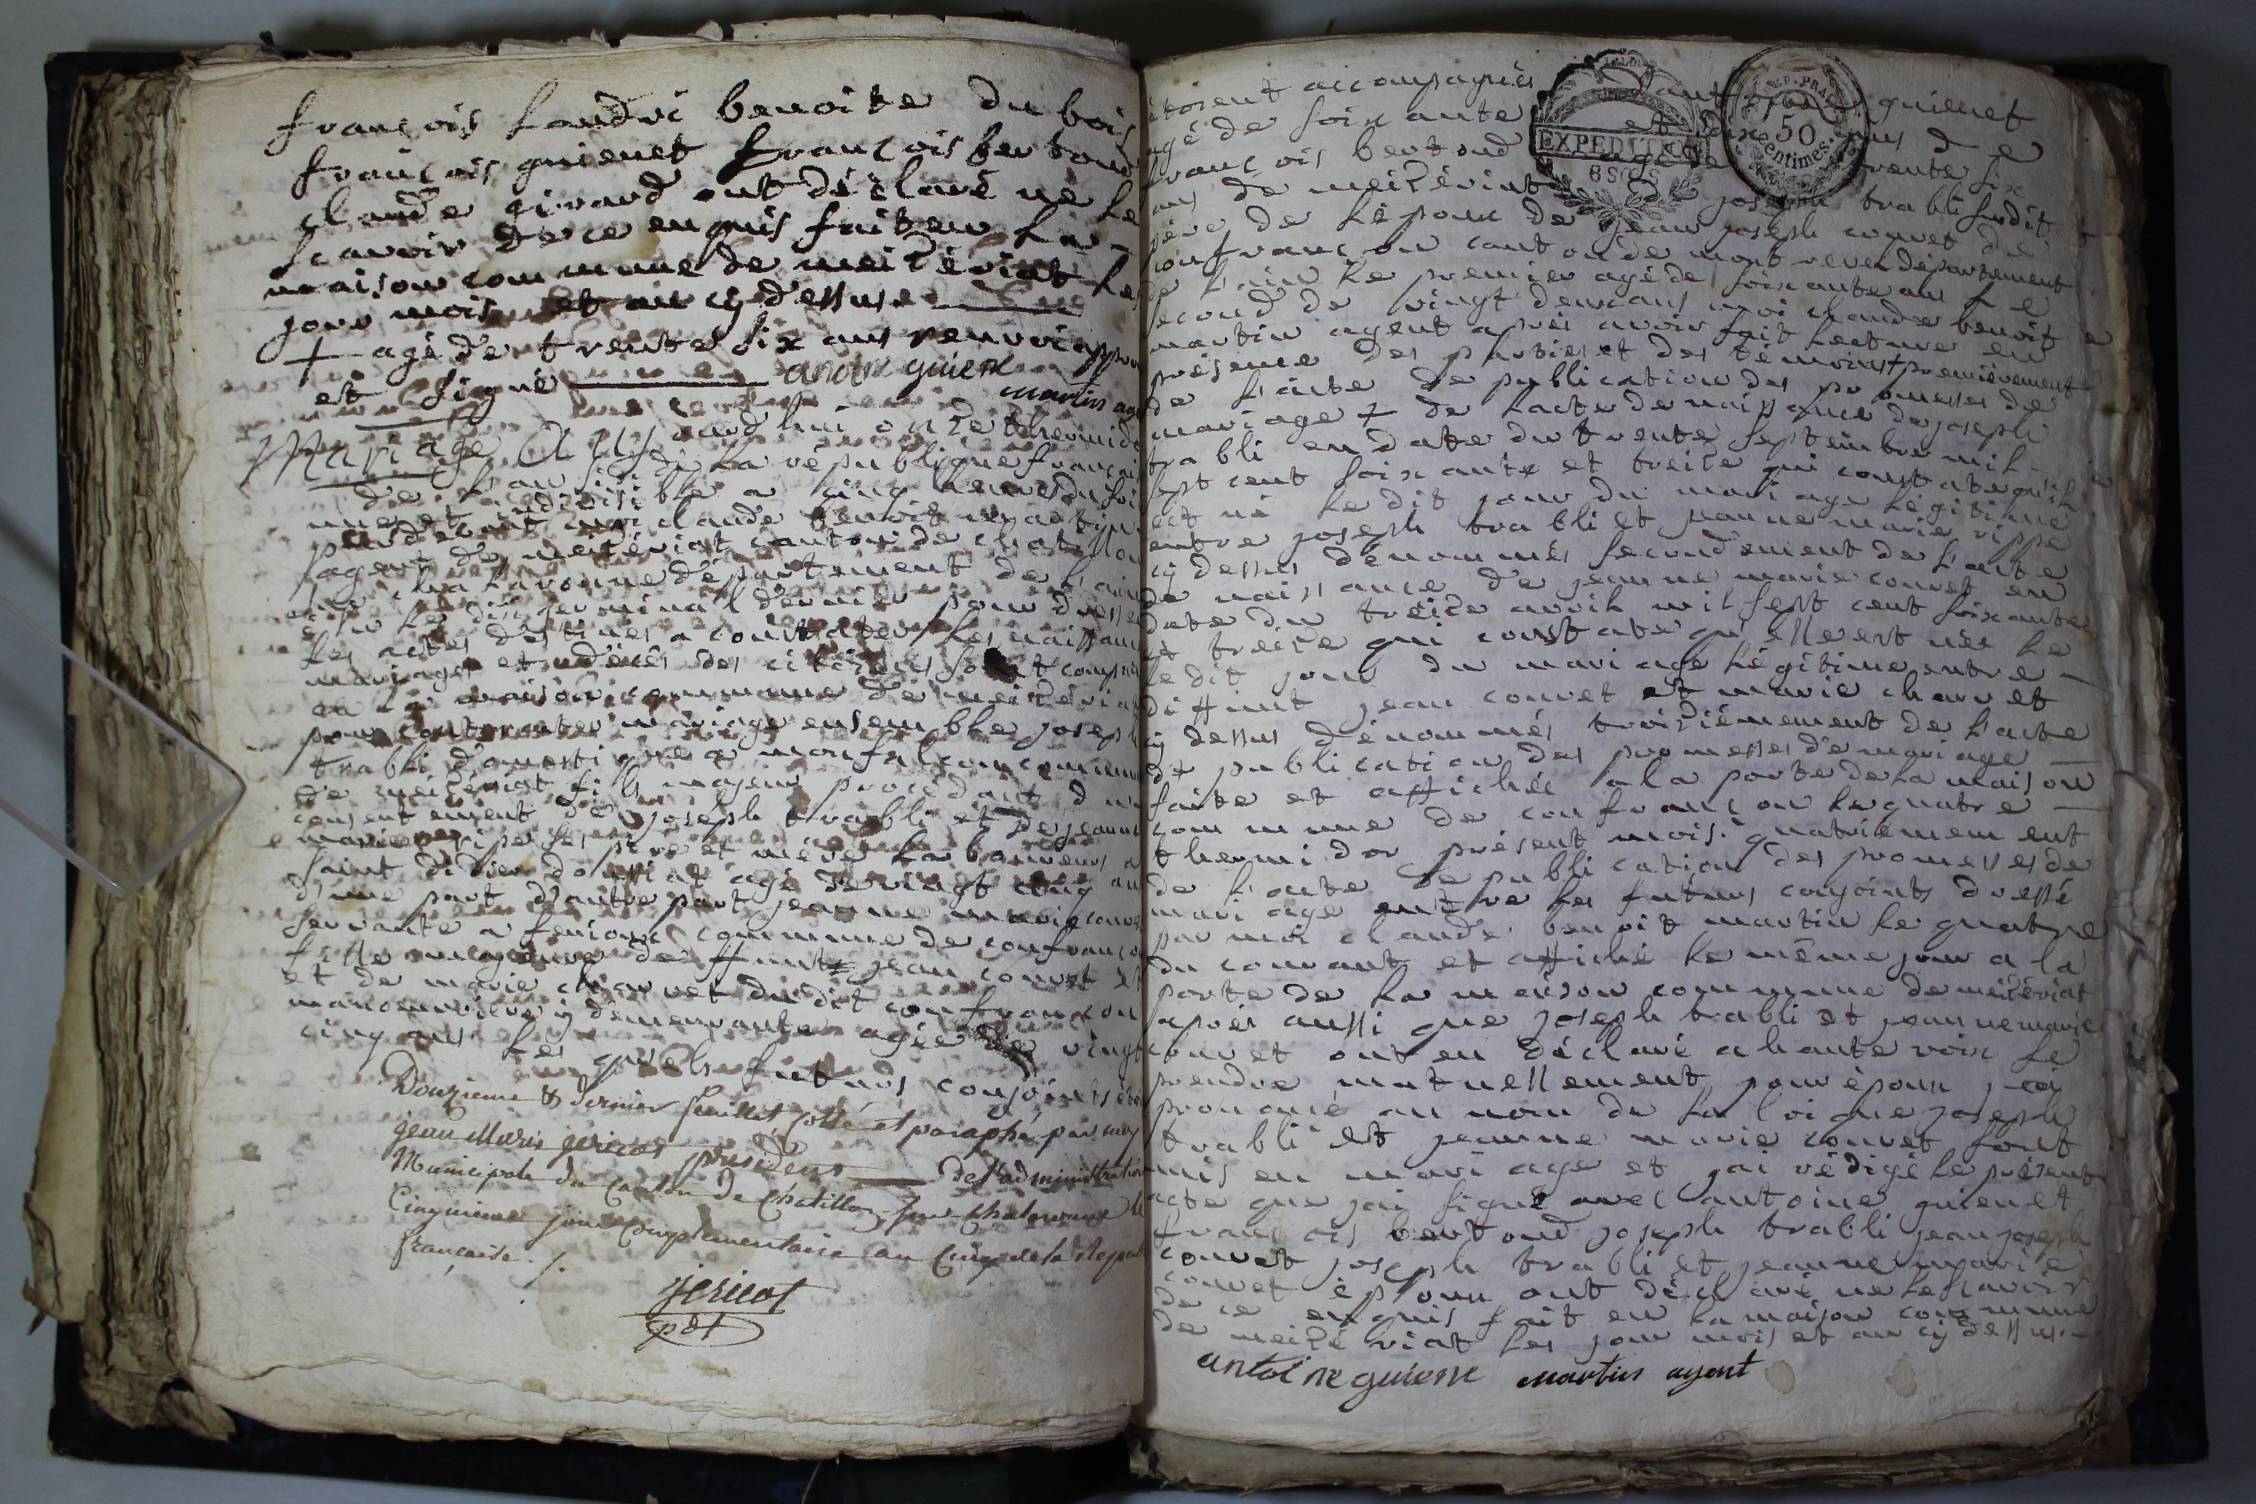 françois Landri benoite du bois
françois guienet françois bertoud
claude girard ont déclaré ne le
scavoir de ce enquis fait en la
maison commune de meizériat les
jour mois et an cy dessus
+ agé de trente six ans renvoi appro
et signé antoine guiene
martin age
Mariage Aujourdhui onze thermidor
de l'an six de la république françai
une et indivisible a cinq heures du soir
pardevant moi claude benoit martin
agent de meizériat canton de chatillon
sur chalaronne département de l'ain
élu le dix germinal dernier pour dresser
les actes destinés a constater les naissances
mariages et décès des citoyens sont comparus
en la maison commune de meizériat
pour contracter mariage ensemble joseph
trabli domestique a monfalcon commune
de meizériat fils majeur procédant du
consentement de joseph trabli et de jeanne
marie rippe ses père et mère laboureurs a
saint didier doussiat agé de vingt cinq ans
d'une part d'autre part jeanne marie couvet
servante a commune de confrançon
fille majeure de deffunt jean couvet
et de marie charvet du dit confrançon
manoeuvrière y demeurante agée de vingt
cinq ans les quels futurs conjoints
Douzieme & dernier feuillet cotté et paraphé par moy
jean Marie jericot président de l'administration
Municipale du Canton de Châtillon sur Chalaronne le
Cinquieme jour Complementaire an Cinq de la Repub
française ./.
jericot
pdt
étoient accompagnés guienet
EXPEDITION
REP. FRA
50
centimes
agé de soixante et dix ans de
françois bertoud agé de trente six
ans de meizériat de joseph trabli susdit
père de lépoux de jean joseph couvet de
confrançon canton de montrevel département
de lain le premier agé de soixante ans le
second de vingt deux ans moi claude benoit
martin agent après avoir fait lecture en
présence des parties et des témoins + premièrement
de lacte de publication des promesses de
mariage + de lacte de naissance de joseph
trabli en date du trente septembre mil
sept cent soixante et treize qui constate quil
est né le dit jour du mariage légitime
entre joseph trabli et jeanne marie rippe
cy dessus dénommés secondement de l'acte
de naissance de jeanne marie couvet en
date du treize avril mil sept cent soixante
et treize qui constate quelle est née le
le dit jour du mariage légitime entre
diffunt jean couvet et marie charvet
cy dessus dénommés troizièmement de lacte
de publication des promesses de mariage
faite et affichée a la porte de la maison
commune de confrançon le quatre
thermidor présent mois. quatrièmement
de lacte de publication des promesses de
mariage entre les futurs conjoints dressé
par moi claude benoit martin le quatre
du courant et affiché le même jour a la
porte de la meison commune de meizériat
après aussi que joseph trabli et jeanne marie
couvet ont eu déclaré a haute voix se
prendre mutuellement pour époux j'ai
prononcé au nom de la loi que joseph
trabli et jeanne marie couvet sont
unis en mariage et jai rédigé le présent
acte que jai signé avec antoine guienet
françois bertoud joseph trabli jean joseph
couvet joseph trabli et jeanne marie
couvet époux ont déclaré ne le scavoir
de ce enquis fait en la maison commune
de meizériat les jour mois et an cy dessus.
antoine guiene martin agent